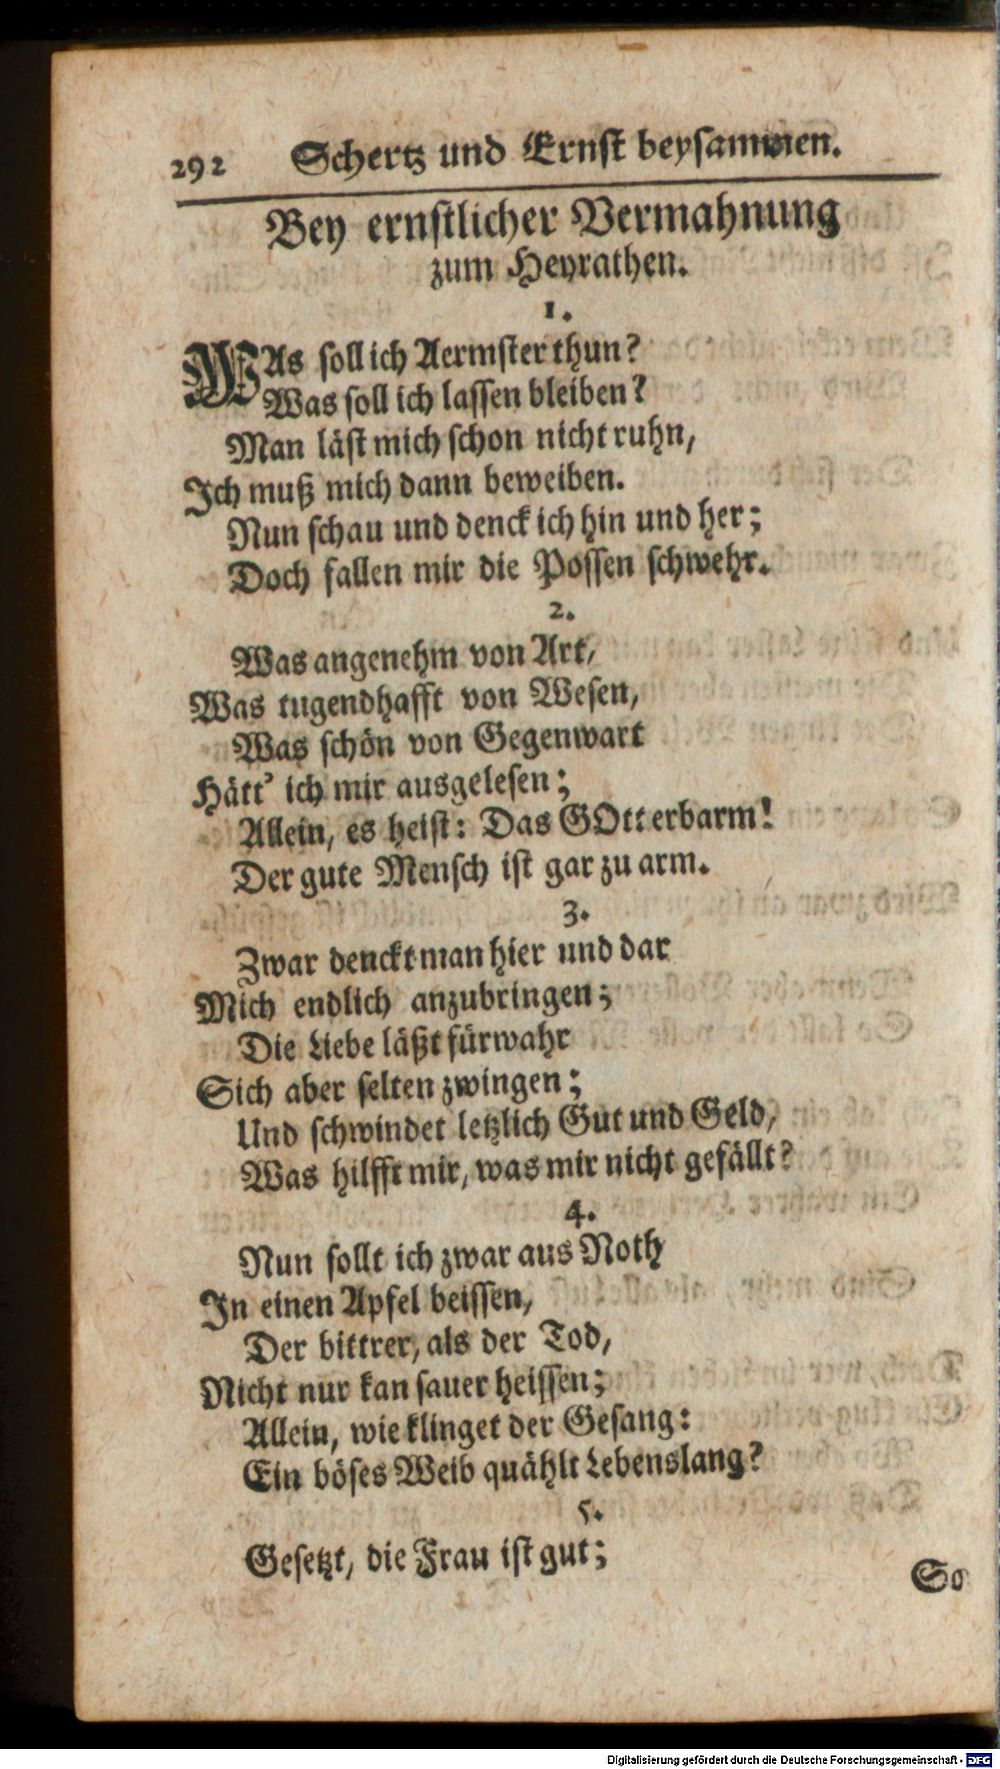 292 Schertz und Ernst beysammen.
Bey ernstlicher Vermahnung
zum Heyrathen.
1.
WAs soll ich Aermster thun?
Was soll ich lassen bleiben?
Man läst mich schon nicht ruhn,
Ich muß mich dann beweiben.
Nun schau und denck ich hin und her;
Doch fallen mir die Possen schwehr.
2.
Was angenehm von Art,
Was tugendhafft von Wesen,
Was schön von Gegenwart
Hätt' ich mir ausgelesen;
Allein, es heist: Das GOtt erbarm!
Der gute Mensch ist gar zu arm.
3.
Zwar denckt man hier und dar
Mich endlich anzubringen;
Die Liebe läßt fürwahr
Sich aber selten zwingen;
Und schwindet letzlich Gut und Geld,
Was hilfft mir, was mir nicht gefällt?
4.
Nun sollt ich zwar aus Noth
In einen Apfel beissen,
Der bittrer, als der Tod,
Nicht nur kan sauer heissen;
Allein, wie klinget der Gesang:
Ein böses Weib quählt Lebenslang?
5.
Gesetzt, die Frau ist gut;
So
Digitalisierung gefördert durch die Deutsche Forschungsgemeinschaft - DFG